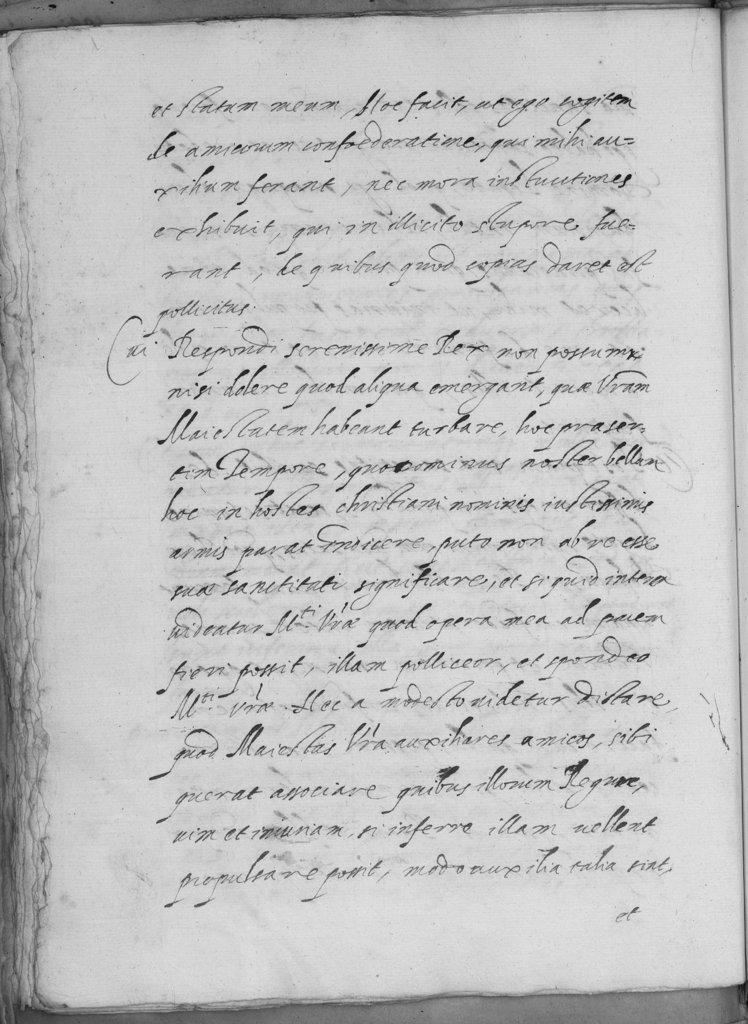 et statum meum, Hoc facit, ut ego cogitem
de amicorum confoederatione, qui mihi au=
xilium ferant, nec mora instructiones
exhibuit, qui in illicito stupore fue=
rant, de quibus quod copias daret est
pollicitus.
Cui Respondi serenissime Rex non possum
nisi dolere quod aliqua emergant, quæ Vram
Maiestatem habeant turbare, hoc præser=
tim Tempore, quo dominus noster bellum
hoc in hostes christiani nominis iustissimis
armis parat indicere, puto non ab re esse
suæ sanctitati significare, et si quid interea
uideatur M.ti Vræ quod opera mea ad pacem
fieri possit, illam polliceor, et spondeo
M.ti Vræ. Nec a modesto uidetur distare,
quod Maiestas Vra auxiliares amicos, sibi
querat associare quibus illorum Regum,
uim et iniuriam, si inferre illam uellent
propulsare possit, modo auxilia talia sint,
et